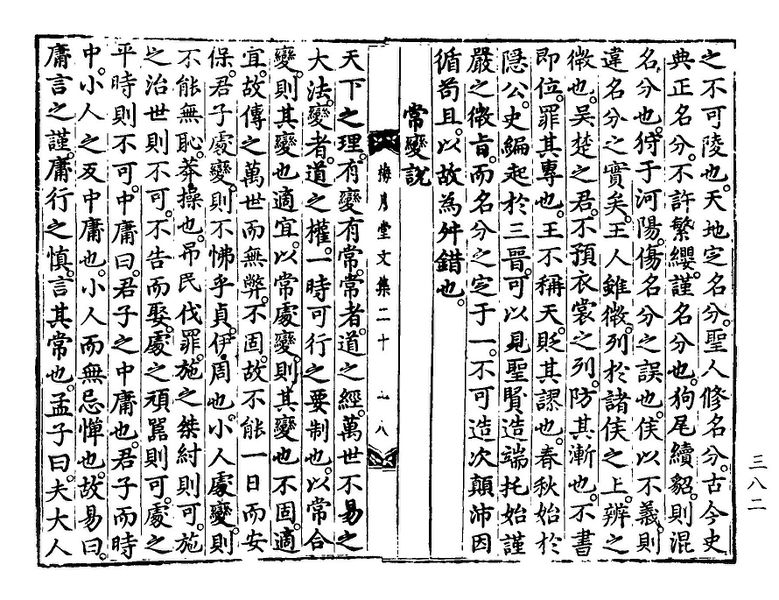 之不可陵也。天地定名分。聖人修名分。古今史
典正名分。不許繁纓。謹名分也。狗尾續貂。則混
名分也。狩于河陽。傷名分之誤也。侯以不義。則
違名分之實矣。王人雖微。列於諸侯之上。辨之
微也。吳楚之君。不預衣裳之列。防其漸也。不書
即位。罪其專也。王不稱天。貶其謬也。春秋始於
隱公。史編起於三晉。可以見聖賢造端托始謹
嚴之微旨。而名分之定于一。不可造次顛沛因
循苟且。以故為舛錯也。
常變說
梅月堂文集二十 八
天下之理。有變有常。常者。道之經。萬世不易之
大法。變者。道之權。一時可行之要制也。以常合
變。則其變也適宜。以常處變。則其變也不固。適
宜。故傳之萬世而無弊。不固。故不能一日而安
保。君子處變。則不怫乎貞。伊周也。小人處變。則
不能無恥。莽操也。吊民伐罪。施之桀紂則可。施
之治世則不可。不告而娶。處之頑嚚則可。處之
平時則不可。中庸曰。君子之中庸也。君子而時
中。小人之反中庸也。小人而無忌憚也。故易曰。
庸言之謹。庸行之慎。言其常也。孟子曰。夫大人
三八二